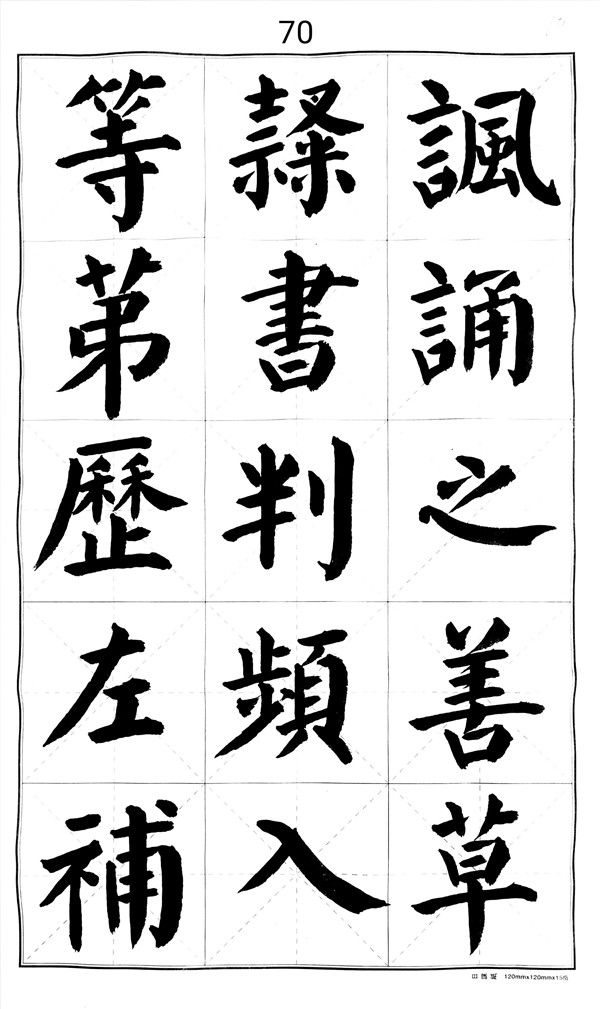 70
諷誦之善草
隸書判頻入
等第歷左補
120mmx120mmx15格